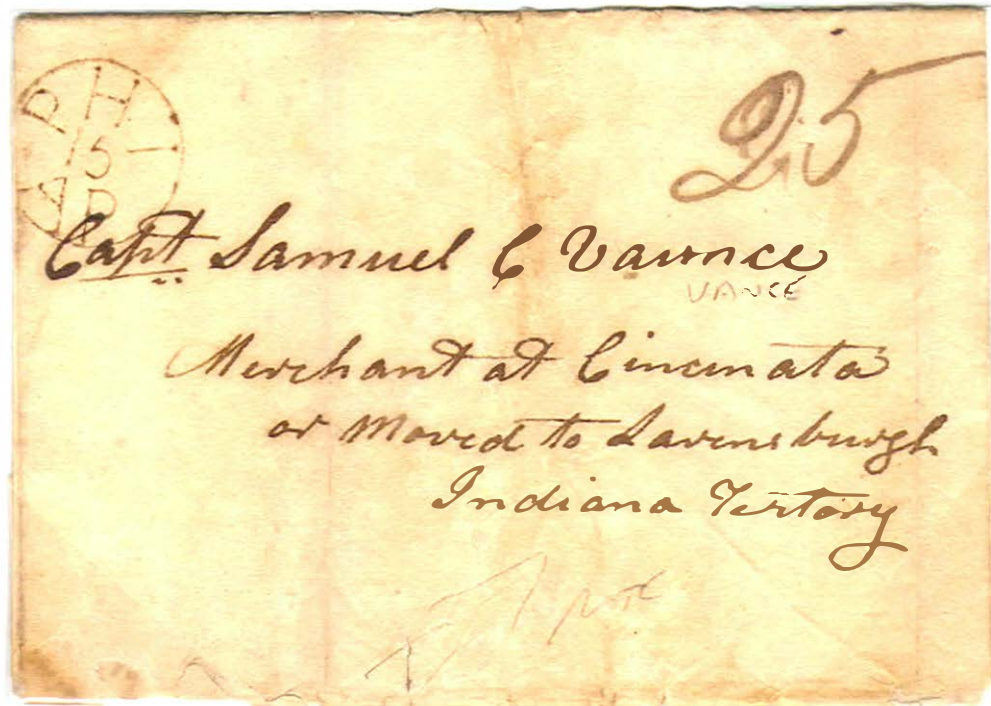 PH
5
AP
25
Capt Samuel C Varnce
VANCE
Merchant at Cincinata
or Moved to Lavensburgh
Indiana Tertory